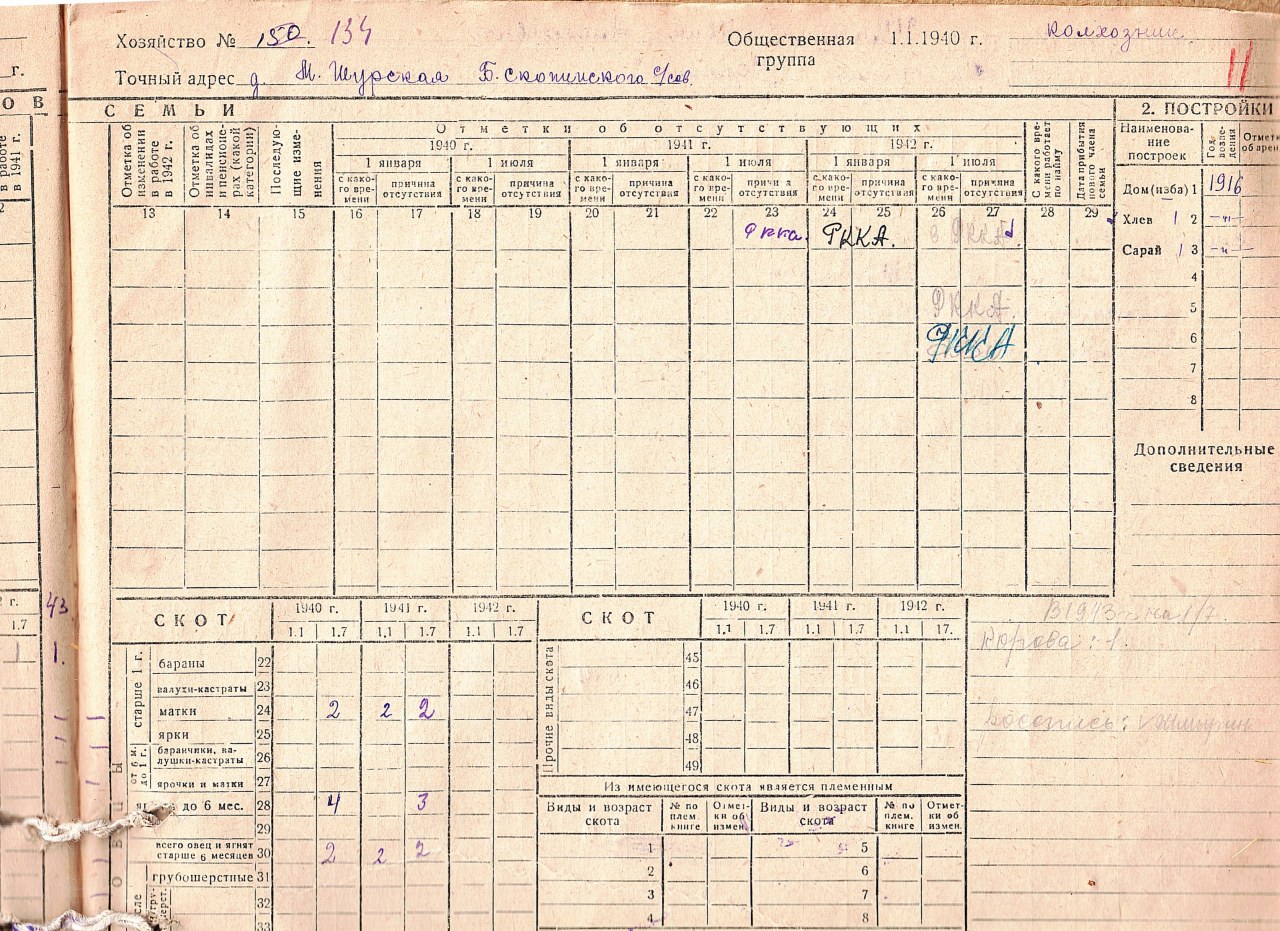 Хозяйство № 150. 134
Общественная группа 1.1.1940 г. колхозник.
11
Точный адрес д. М. Шурская Б. Скопинского с/сов.
г.
О В
СЕМЬИ
2. ПОСТРОЙКИ
в работе в 1941 г.
Отметка об изменении в работе в 1942 г.
Отметка об инвалидах и пенсионерах (какой категории)
Последующие изменения
Отметки об отсутствующих
1940 г. 1941 г. 1942 г.
1 января 1 июля 1 января 1 июля 1 января 1 июля
с какого времени причина отсутствия с какого времени причина отсутствия с какого времени причина отсутствия с какого времени причина отсутствия с какого времени причина отсутствия с какого времени причина отсутствия
С какого времени работает по найму
Дата прибытия нового члена семьи
Наименование построек
Год возведения
13 14 15 16 17 18 19 20 21 22 23 24 25 26 27 28 29
Дом (изба) 1 1916
Хлев 1 2 —„—
Сарай 1 3 —„—
4
5
6
7
8
Ркка. РККА. в РККА
РККА.
РККА
Дополнительные сведения
В 1943 г на 1/7
Корова: 1.
г. 43
1.7
1 1.
СКОТ 1940 г. 1941 г. 1942 г.
1.1 1.7 1.1 1.7 1.1 1.7
старше 1 г.
бараны 22
валухи-кастраты 23
матки 24 2 2 2
ярки 25
от 6 м. до 1 г.
баранчики, валушки-кастраты 26
ярочки и матки 27
до 6 мес. 28 4 3
29
всего овец и ягнят старше 6 месяцев 30 2 2 2
грубошерстные 31
32
33
СКОТ 1940 г. 1941 г. 1942 г.
1.1 1.7 1.1 1.7 1.1 17.
Прочие виды скота
45
46
47
48
49
Из имеющегося скота является племенным
Виды и возраст скота № по плем. книге Отметки об измен. Виды и возраст скота № по плем. книге Отметки об измен.
1 5
2 6
3 7
4 8